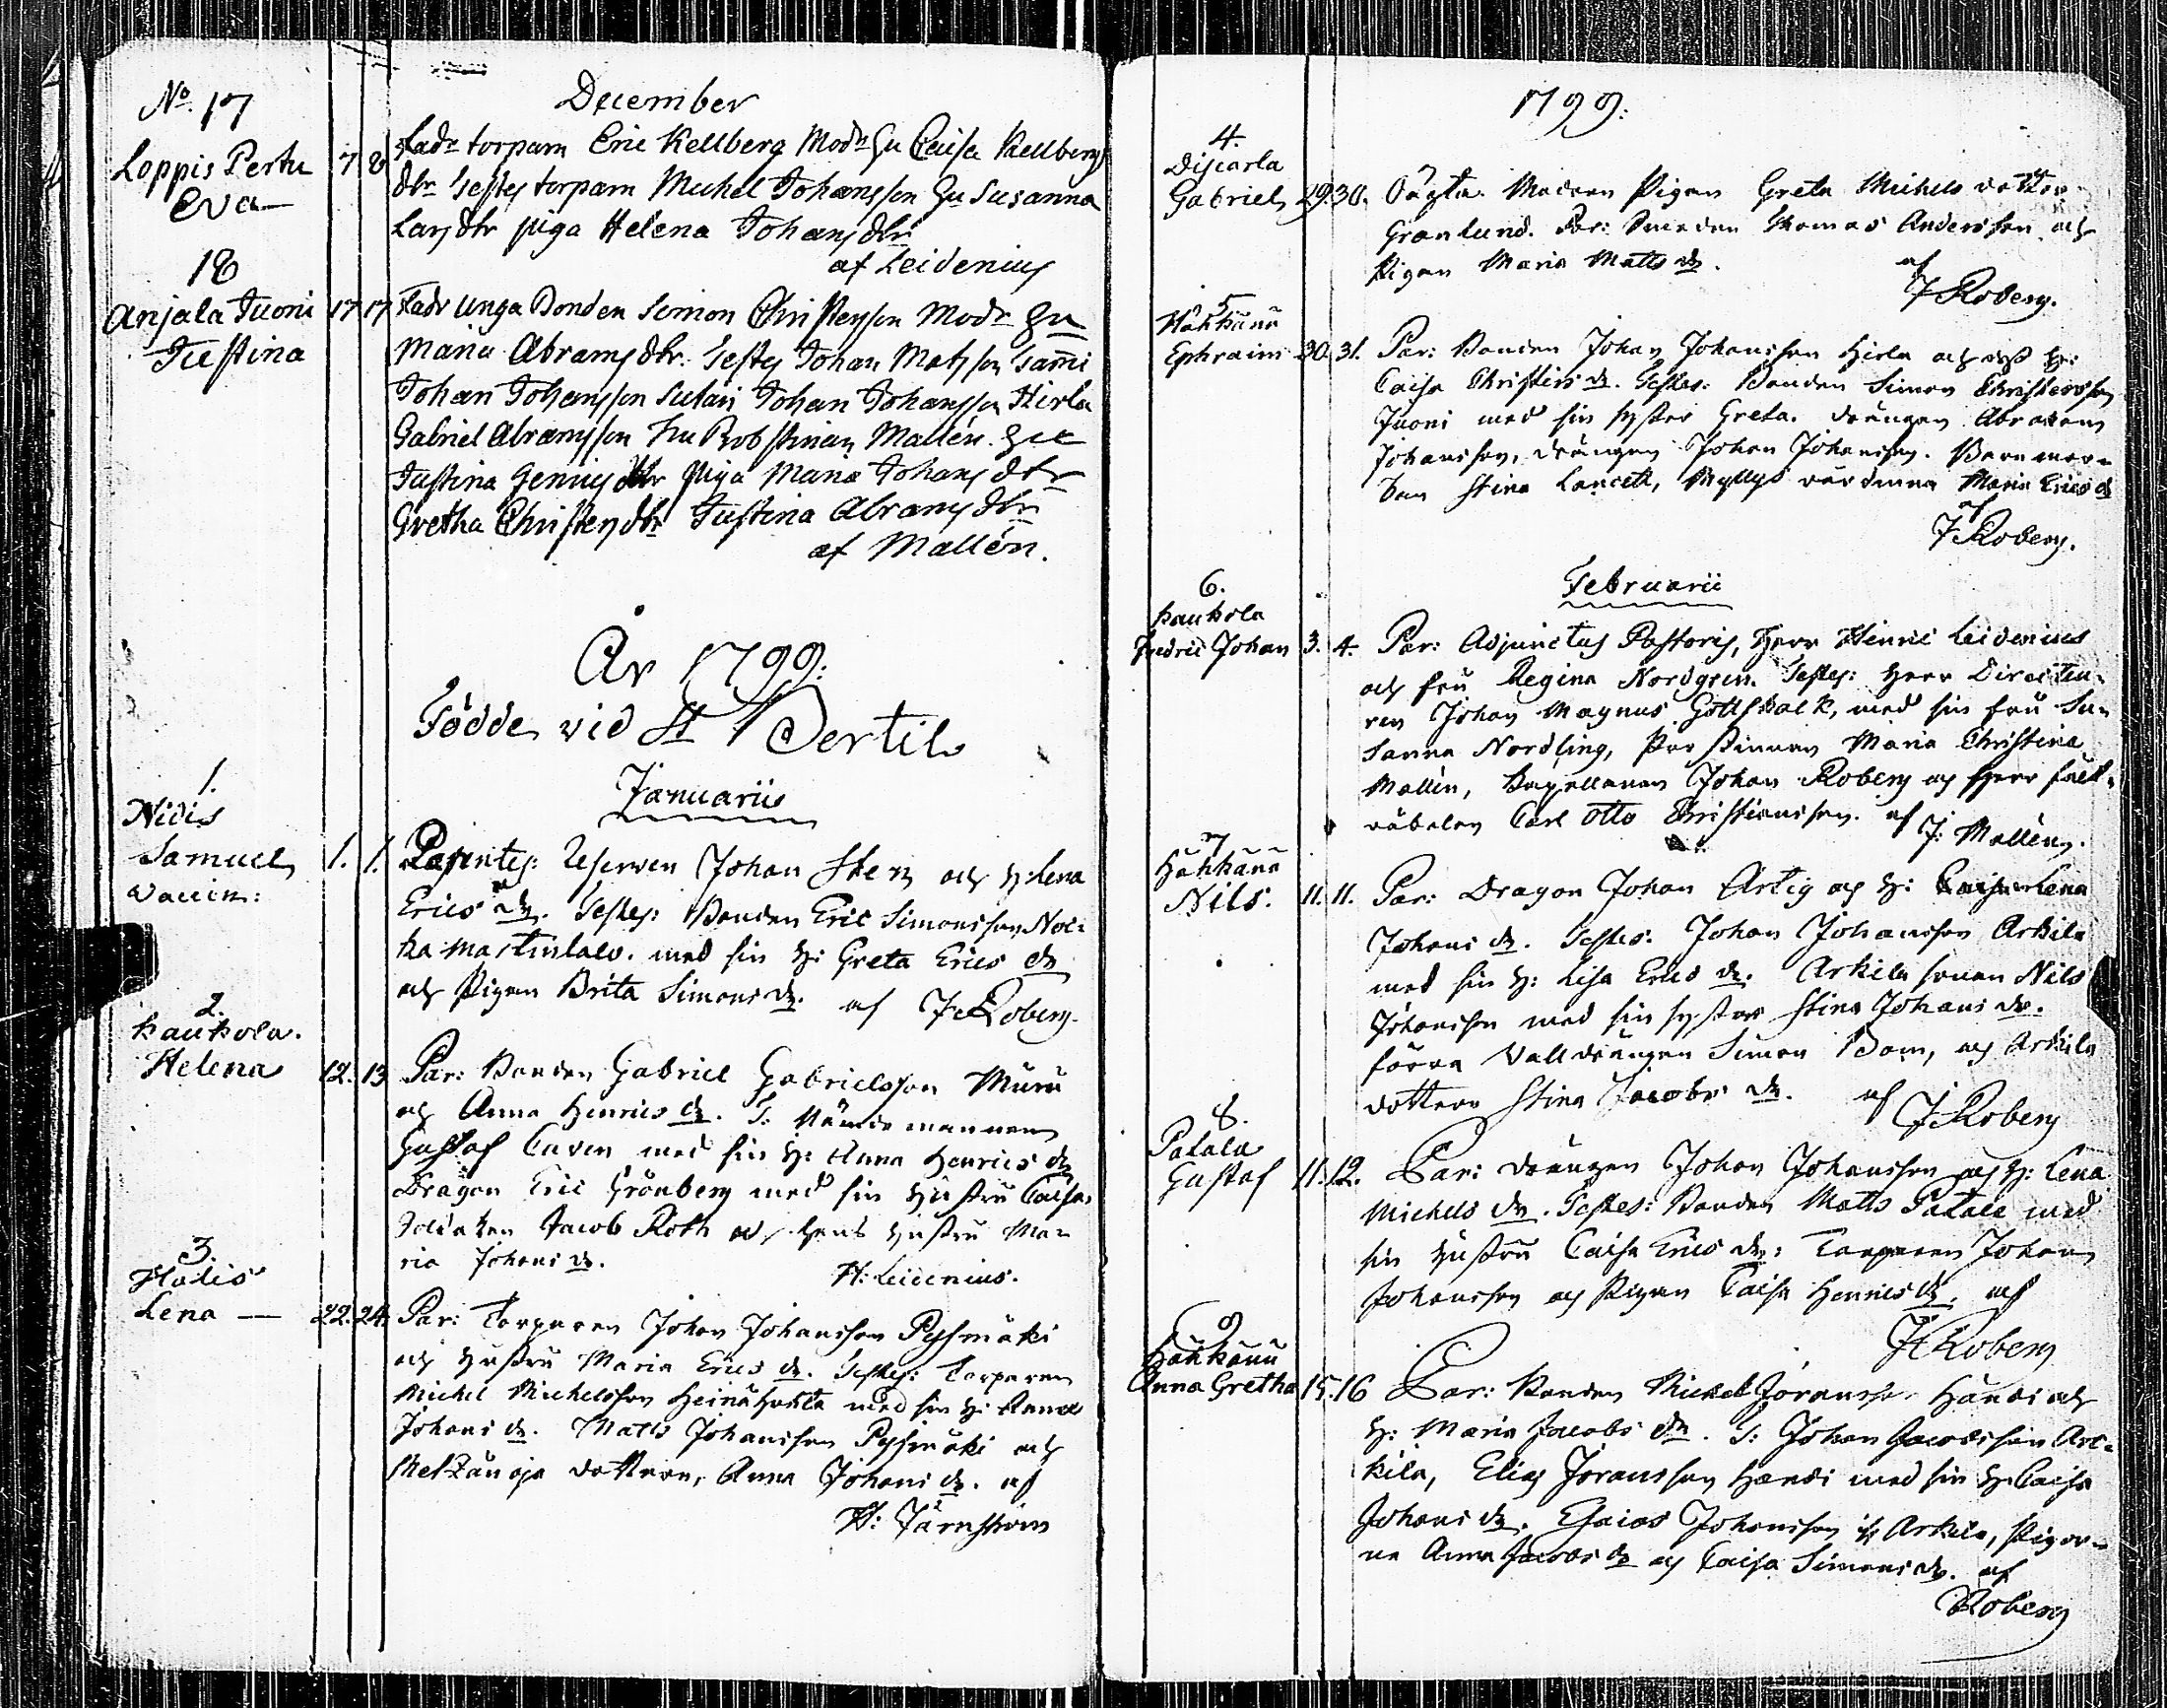 No. 17
December
Loppis Pertu 7 8 Fadr torparn Eric Kellberg Modr hu Caisa Kellberg
Eva
dtr Testes torparn Michel Johansson hu Susanna
Lars dtr piga Helena Johans dtr
af Leidenius
18
Anjala Tuoni 17 17 Fadr unga Bonden Simon Christersson Modr hu
Justina
Maria Abrams dtr. Testes Johan Matsson
Johan Johansson Sutari Johan Johansson Hirla
Gabriel Abramsson Mallén. hu
Justina dtr piga Maria Johans dtr
Gretha Christers dtr Justina Abrams dtr
af Mallén.
År 1799.
Födde vid St Bertils
Januarii
1.
Nidis
Samuel 1. 1. Parentes: Reserven Johan och h: Lena
Erics dr. Testes: Bonden Eric Simonsson
med sin h: Greta Erics dr
och Pigan Brita Simons dr. af J Roberg.
2.
Kaukola.
Helena 12. 13 Par: Bonden Gabriel Gabrielsson
och Anna Henrics dr. T: Nämndemannen
Gustaf med sin h: Anna Henrics dr
Dragon Eric Grönberg med sin hustru Caisa,
Soldaten Jacob Roth och hans hustru Ma-
ria Johans dr.
H: Leidenius.
3.
Lena — 22. 24. Par: Torparen Johan Johansson Pyssmäki
och hustru Maria Erics dr. Testes: Torparen
Michel Michelsson med sin h: Anna
Johans dr. Matts Johansson Pyssmäki och
dottern, Anna Johans dr. af
H: Järnström
1799.
4.
Discarla
Gabriel 29. 30. Oägta. Modren Pigan Greta Michels dotter
Granlund. Smeden Thomas Andersson och
Pigan Maria Matts dr.
af
J Roberg.
5
Ephraim 30. 31. Par: Bonden Johan Johansson Hirla och dess h:
Caisa Christers dr. Testes: Bonden Simon Christersson
Juoni med sin syster Greta. drängen Abraham
Johansson, drängen Johan Johansson. Barnmor-
skan Stina Myllys värdinna Maria Erics dr
af
J Roberg.
Februarii
6.
Kaukola
Fredric Johan 3. 4. Par: Adjunctus Pastoris, Herr Henric Leidenius
och fru Regina Nordgren. Testes: Herr Directeu-
ren Johan Magnus Gottskalk, med sin fru Su-
sanna Nordling, Maria Christina
Mallén, Kapellanen Johan Roberg och Herr fält-
väbelen Carl Otto Christiansson. af J: Mallén.
7
Nils. 11. 11. Par: Dragon Johan Artig och h: Lena
Johans dr. Testes. Johan Johansson Arkila
med sin h: Lisa Erics dr. Arkila sonen Nils
Johansson med sin syster Stina Johans dr.
förra Vall drängen Simon Bom, och Arkila
dottern Stina Jacobs dr. af J Roberg
8.
Patala
Gustaf 11. 12. Par: drängen Johan Johansson och h: Lena
Michels dr. Testes: Bonden Matts Patala med
sin hustru Caisa Erics dr: Torparen Johan
Johansson och Pigan Caisa Henrics dr. af
J Roberg
9
Anna Gretha 15. 16 Par: Bonden Michel Göransson och
h: Maria Jacobs dr. T: Johan Jacobsson Ar-
kila, Elias Göransson med sin h: Caisa
Johans dr. Esaias Johansson Arkila, Pigor-
na Anna Jacobs dr och Caisa Simons dr. af
Roberg